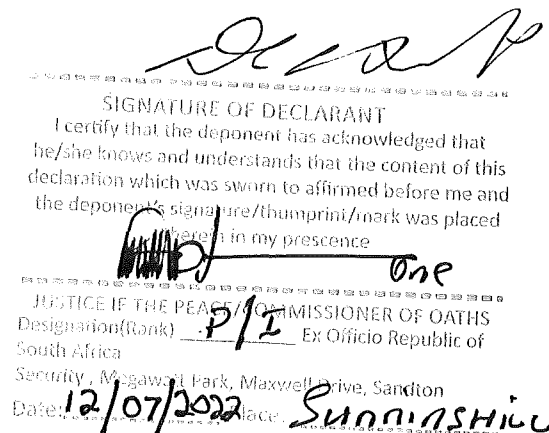 SIGNATURE OF DECLARANT
I certify that the deponent has acknowledged that
he/she knows and understands that the content of this
declaration which was sworn to affirmed before me and
the deponent's signature/thumprint/mark was placed
herein in my prescence
one
JUSTICE IF THE PEACE/COMMISSIONER OF OATHS
Designation(Rank) P/I Ex Officio Republic of
South Africa
Security, Megawatt Park, Maxwell Drive, Sandton
Date: 12/07/2022 Place: